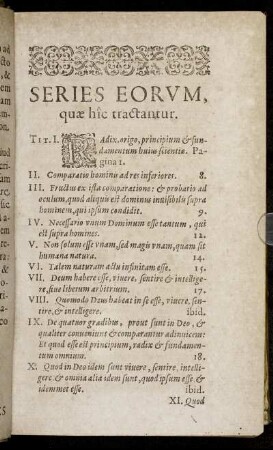 SERIES EORVM,
quæ hîc tractantur.
TIT. I. RAdix, origo, principium & fun-
damentum huius scientiæ. Pa-
gina 1.
II. Comparatio hominis ad res inferiores. 8.
III. Fructus ex ista comparatione: & probatio ad
oculum, quod aliquis est dominus inuisibilis supra
hominem, qui ipsum condidit. 9.
IV. Necessario vnum Dominum esse tantum, qui
est supra homines. 12.
V. Non solum est vnum, sed magis vnum, quàm sit
humana natura. 14.
VI. Talem naturam actu infinitam esse. 15.
VII. Deum habere esse, viuere, sentire & intellige-
re, siue liberum arbitrium. 17.
VIII. Quomodo Deus habeat in se esse, viuere, sen-
tire, & intelligere. ibid.
IX. De quatuor gradibus, prout sunt in Deo, &
qualiter conueniunt & comparantur adinuicem:
Et quod esse est principium, radix & fundamen-
tum omnium. 18.
X. Quod in Deo idem sunt viuere, sentire, intelli-
gere & omnia alia idem sunt, quod ipsum esse &
idemmet esse. ibid.
XI. Quod